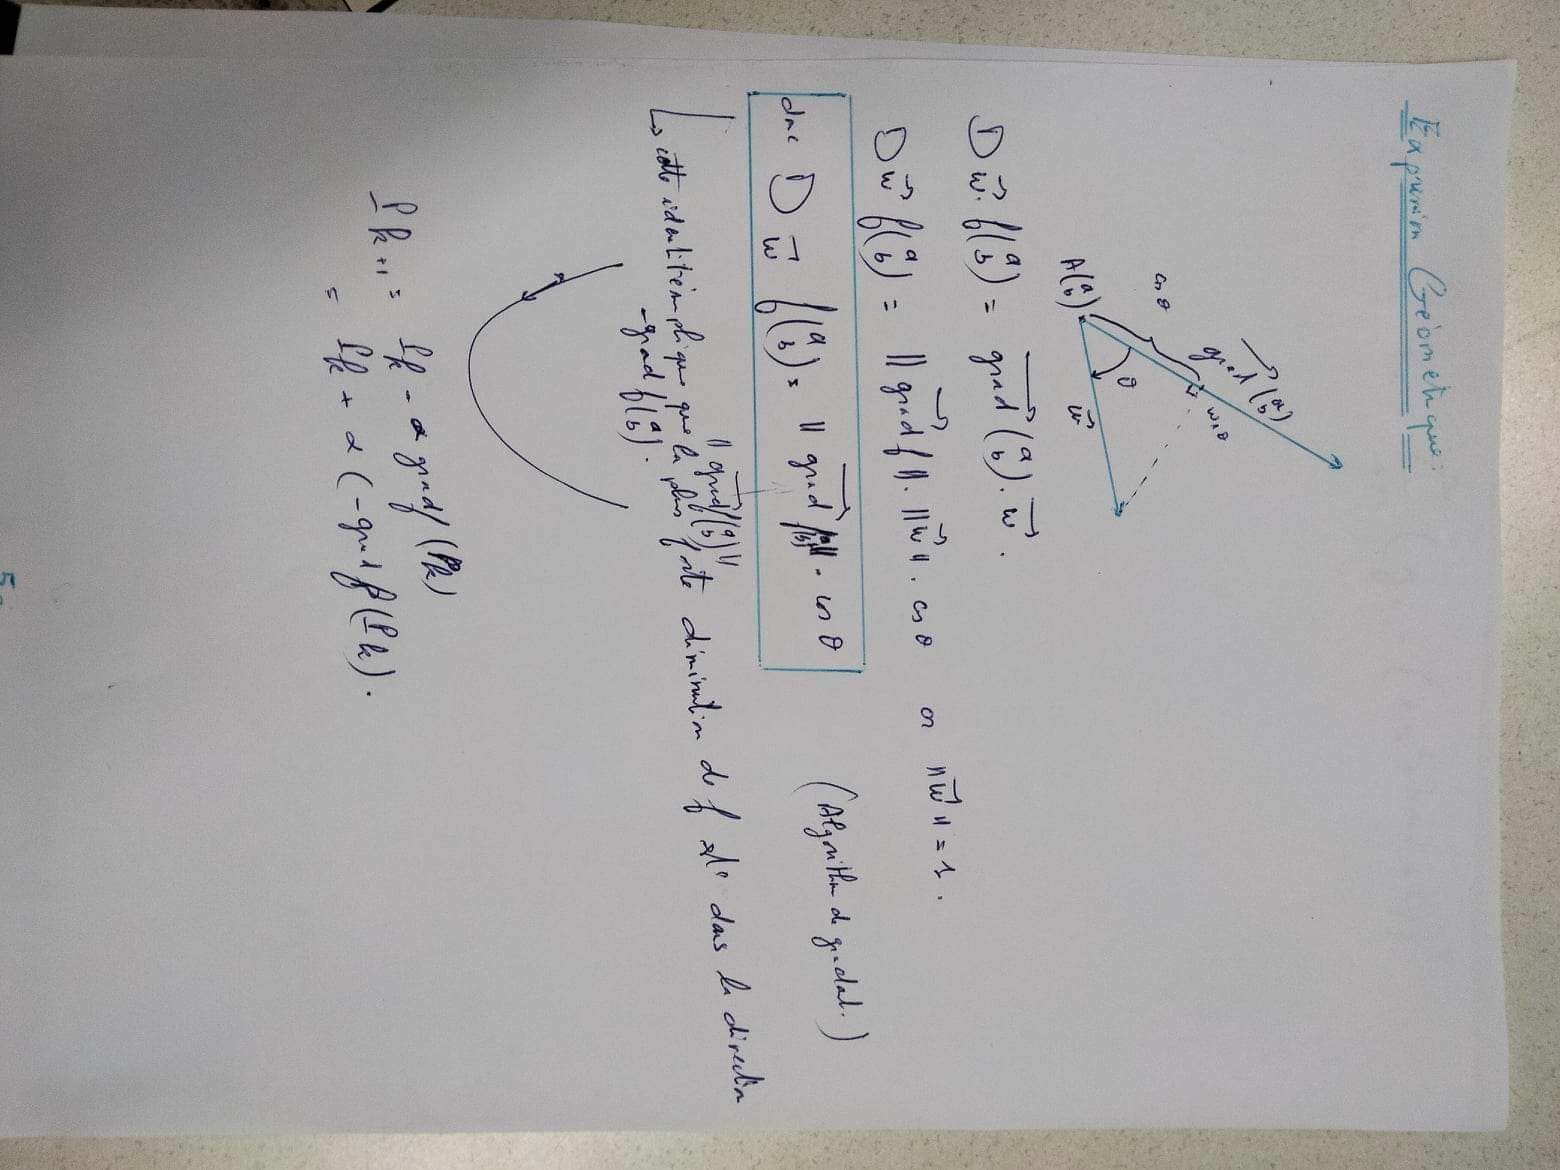 Expression Géométrique:
grad (a b)
cos θ
θ
A(a b)
w
D w. f(a b) = grad (a b) . w .
D w f(a b) = || grad f || . || w || . cos θ or || w || = 1 .
donc D w f(a b) = || grad f(a b) || . cos θ
(Algorithm de gradient.)
|| grad f(a b) ||
cette identité implique que la plus forte diminution de f est dans la direction
-grad f(a b) .
P k+1 = P k - α grad f (P k)
= P k + α (-grad f (P k) .
5